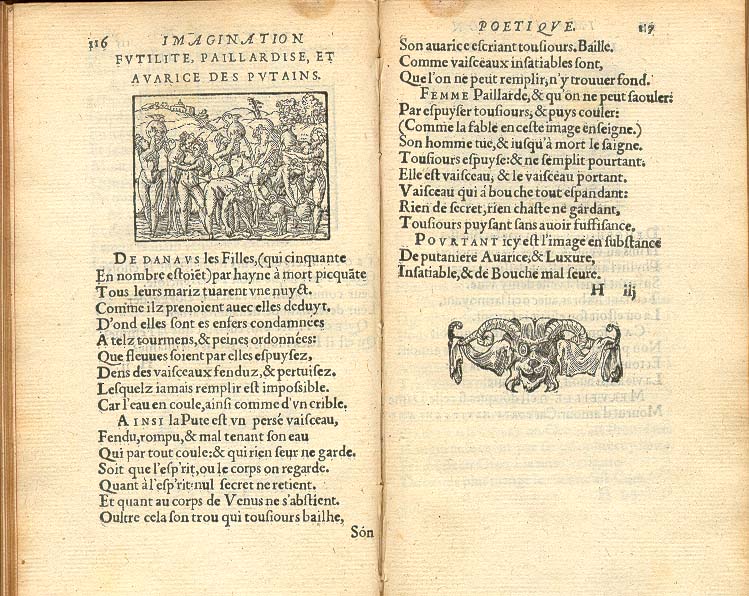 116 IMAGINATION
FVTILITE, PAILLARDISE, ET
AVARICE DES PVTAINS.
DE DANAVS les Filles, (qui cinquante
En nombre estoiẽt) par hayne à mort picquãte
Tous leurs mariz tuarent vne nuyct.
Comme ilz prenoient auec elles deduyt.
D'ond elles sont es enfers condamnées
A telz tourmens, & penes ordonnées:
Que fleuues soient par elles espuysez,
Dens des vaisceaux fenduz, & pertuisez.
Lesquelz iamais remplir est impossible.
Car l'eau en coule, ainsi comme d'vn crible.
AINSI la Pute est vn persé vaisceau,
Fendu, rompu, & mal tenant son eau
Qui par tout coule: & qui rien seur ne garde.
Soit que l'esp'rit, ou le corps on regarde.
Quant à l'esp'rit nul secret ne retient.
Et quant au corps de Venus ne s'abstient.
Oultre cela son trou qui tousiours bailhe,
Són
POETIQVE. 117
Son auarice escriant tousiours. Baille.
Comme vaisceaux insatiables sont,
Que l'on ne peut remplir, n'y trouuer fond.
FEMME Paillarde, & qu'on ne peut saouler:
Par espuyser tousiours, & puys couler:
(Comme la fable en ceste image enseigne.)
Son homme tue, & iusqu'à mort le saigne.
Tousiours espuyse: & ne s'emplit pourtant.
Elle est vaisceau, & le vaisceau portant.
Vaisceau qui à bouche tout espandant:
Rien de secret, rien chaste ne gardant,
Tousiours puysant sans auoir suffisance.
POVRTANT icy est l'image en substance
De putaniere Auarice, & Luxure,
Insatiable, & de Bouche mal seure.
H iij